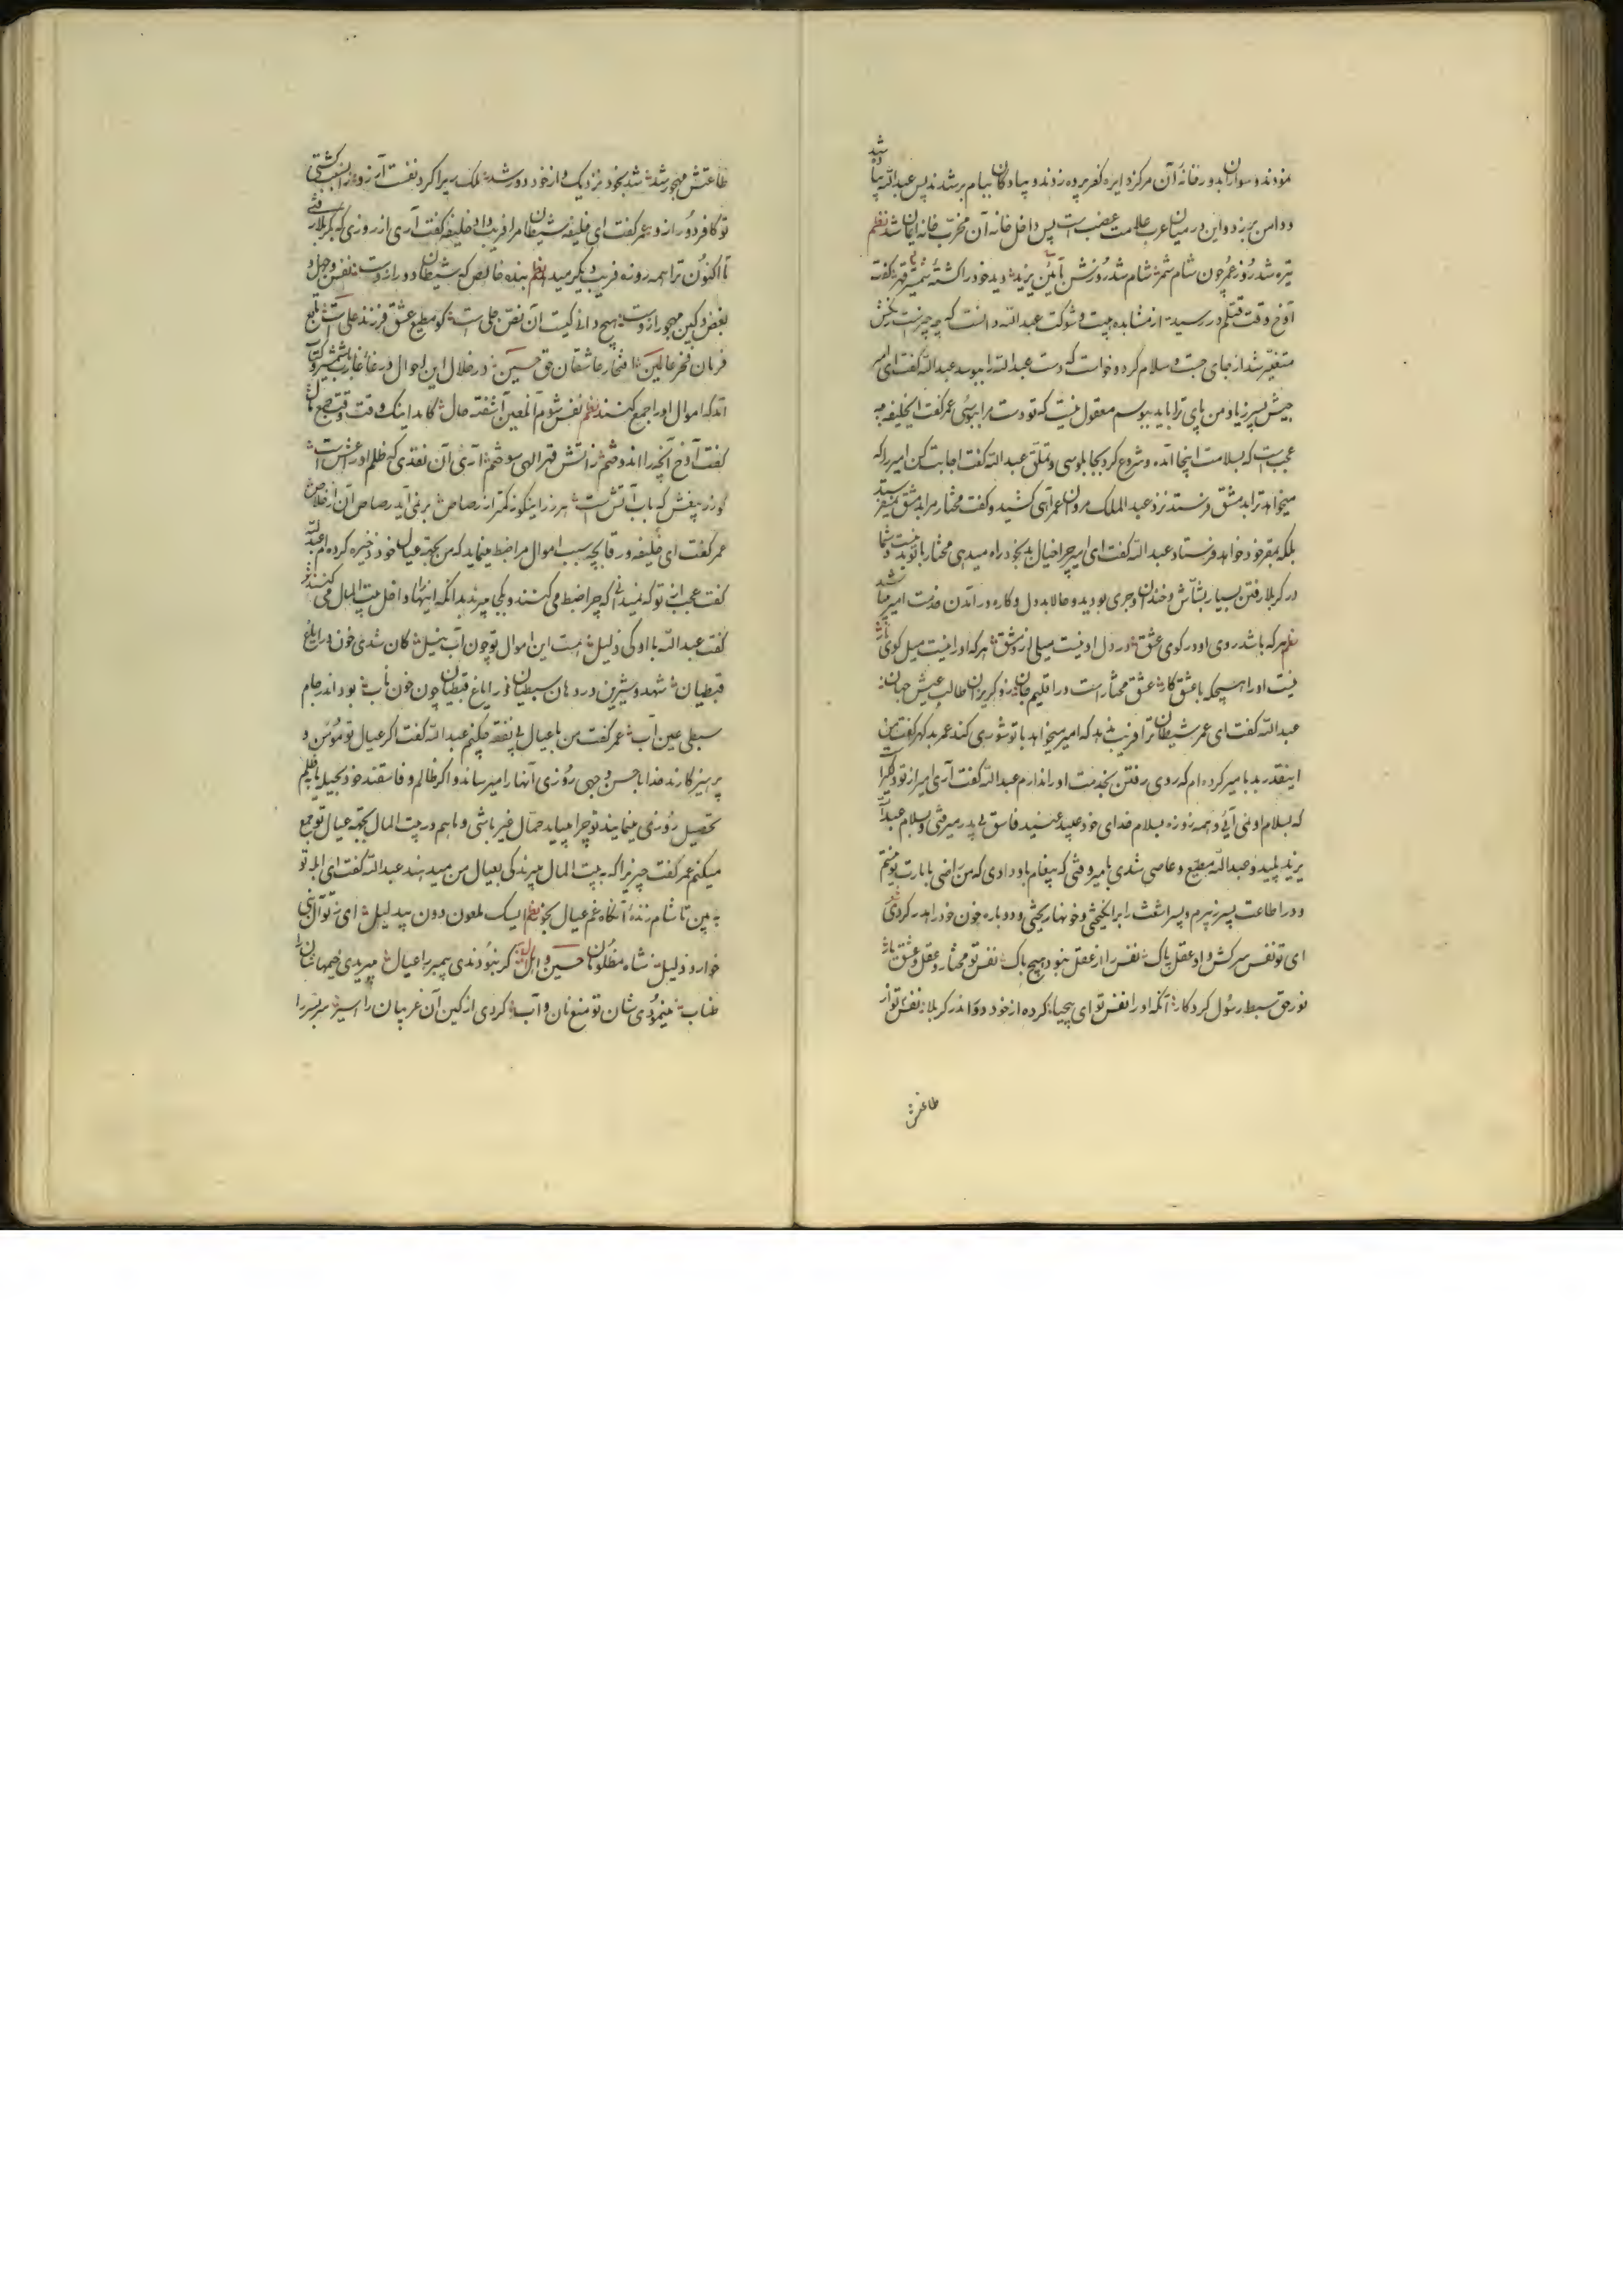 نمودند و سواران بدور خانهٔ آن مرکز دایره کفر پره زدند و پیادگان ببام بر شدند پس عبدالله پیاده شد
و دامن بر زد و این در میان عرب علامت غضب است پس داخل خانه آن مخرب خانه ایمان شد نظم
تیره شد روز عمر چون شام شمر شام شد روزش بآئین یزید دید خود را کشتهٔ شمشیر قهر گفت
آوخ وقت قتلم در رسید از مشاهده هیبت و شوکت عبدالله دانست که چه چیز است رنگش
متغیر شد از جای جست و سلام کرد و خواست که دست عبدالله را ببوسد عبدالله گفت ای امیر
جیش پسر زیاد من پای ترا باید ببوسم معقول نیست که تو دست مرا ببوسی عمر گفت ایخلیفه چه
عجب است که بسلامت اینجا آمده و شروع کرد بچابلوسی و تملق عبدالله گفت اجابت کن امیر را که
میخواهد ترا بدمشق فرستد نزد عبدالملک مروان عمر آهی کشید و گفت مختار مرا بدمشق نمیفرستد
بلکه بمقر خود خواهد فرستاد عبدالله گفت ای امیر چرا خیال بد بخود راه میدهی مختار با تو بد نیست شما
در کربلا رفتن بسیار بشاش و خندان و جری بودید و حالا بددل و کاره در آمدن خدمت امیر میباشید
نظم هر که باشد روی او در کوی عشق در دل او نیست میلی از دمشق هر که او را نیست میل کوی یار
نیست او را هیچکه با عشق کار عشق مختار است در اقلیم جان زو گریزان طالب عیش جهان
عبدالله گفت ای عمر شیطان ترا فریب ندهد که امیر میخواهد با تو شوری کند عمر بد گهر گفت من
اینقدر بد بامیر کرده‌ام که روی رفتن بخدمت او را ندارم عبدالله گفت آری امیر از تو دلگیر است
که بسلام او نمی آئی و همه روزه بسلام خدای خود عبید عنید فاسق بی پدر میرفتی و بسلام عبدالله
یزید پلید و عبدالله مطیع و عاصی شدی بامیر وقتی که پیغام باو دادی که من راضی بامارت تو نیستم
و در اطاعت پسر زبیرم و پسر اشعث را برانگیختی و خونها ریختی و دوباره خون خود را هدر کردی شعر
ای تو نفس سرکش و او عقل پاک نفس را از عقل نبود هیچ باک نفس تو مختار و عقل و عشق یار
نور حق سبط رسول کردگار آنکه او را نفس تو ای بیحیا کرده از خود دور اندر کربلا نفس تو از
طاعتش
طاعتش مهجور شد شد بخود نزدیک و از خود دور شد ملک ری را کرد نفست آرزو زان سبب گشتی
تو کافر دور ازو عمر گفت ای خلیفه شیطان مرا فریب داد خلیفه گفت آری از روزی که بکربلا رفتی
تا اکنون ترا همه روزه فریب دیگر میدهد نظم بنده خالص که شیطان دور ازوست نفس و جهل و
بغض و کین مهجور ازوست هیچ دانی کیست آن نص جلی است کو مطیع عشق فرزند علی است تابع
فرمان فخر عالمین افتخار عاشقان حق حسین در خلال این احوال در غا غارب شمشیر و کتاب
آمد که اموال او را جمع کنند نظم نفس شوم آن لعین آشفته حال گامد اینک وقت وقت جمع مال
گفت آوخ آنچه را اندوختم ز آتش قهر الهی سوختم آری آن نقدی که ظلم اندر عشرت است
عمر گفت ای خلیفه ورقا بچه سبب اموال مرا ضبط مینماید که من بجهة عیال خود ذخیره کرده‌ام عبدالله
گفت عجب است تو که نمیدانی که چرا ضبط می کنند و بکجا میبرند بدانکه اینها را داخل بیت المال می کنند شعر
گفت عبدالله با او کی ذلیل هست این اموال تو چون آب نیل کان شدی خون در ایاغ
قبطیان شهد و شیرین در دهان سبطیان در ایاغ قبطیان چون خون ناب بود اندر جام
سبطی عین آب عمر گفت من با عیال بی نفقه چکنم عبدالله گفت اگر عیال تو مؤمن و
پرهیزکارند خدا باحسن وجهی روزی آنها را میرساند و اگر ظالم و فاسقند خود بحیله یا ظلم
تحصیل روزی مینمایند تو چرا میباید حمال غیر باشی و ما هم در بیت المال بجهة عیال تو جمع
میکنیم عمر گفت چیزیرا که به بیت المال میبرند کی بعیال من میدهند عبدالله گفت ای ابله تو
به بین تا شام زندهٔ آنگاه غم عیال بخور نظم ای سک ملعون دون بیدلیل ای ز تو آل نبی
خوار و ذلیل شاه مظلومان حسین و اهل بیت گر نبودندی پیمبر را عیال میبریدی خیمهاشان را
طناب مینمودی شان تو منع نان و آب کردی از کین آن غریبان را اسیر سر بسر را